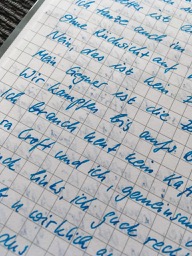 ist d
Ich tanze auch im
ohne Rücksicht auf
Nein, das ist kein
Mein Gegner ist die
Wir kämpfen bis aufs
Ich brauch heut kein
Croft und ich, gemeinsam
links, ich guck rech
wirklich a
das